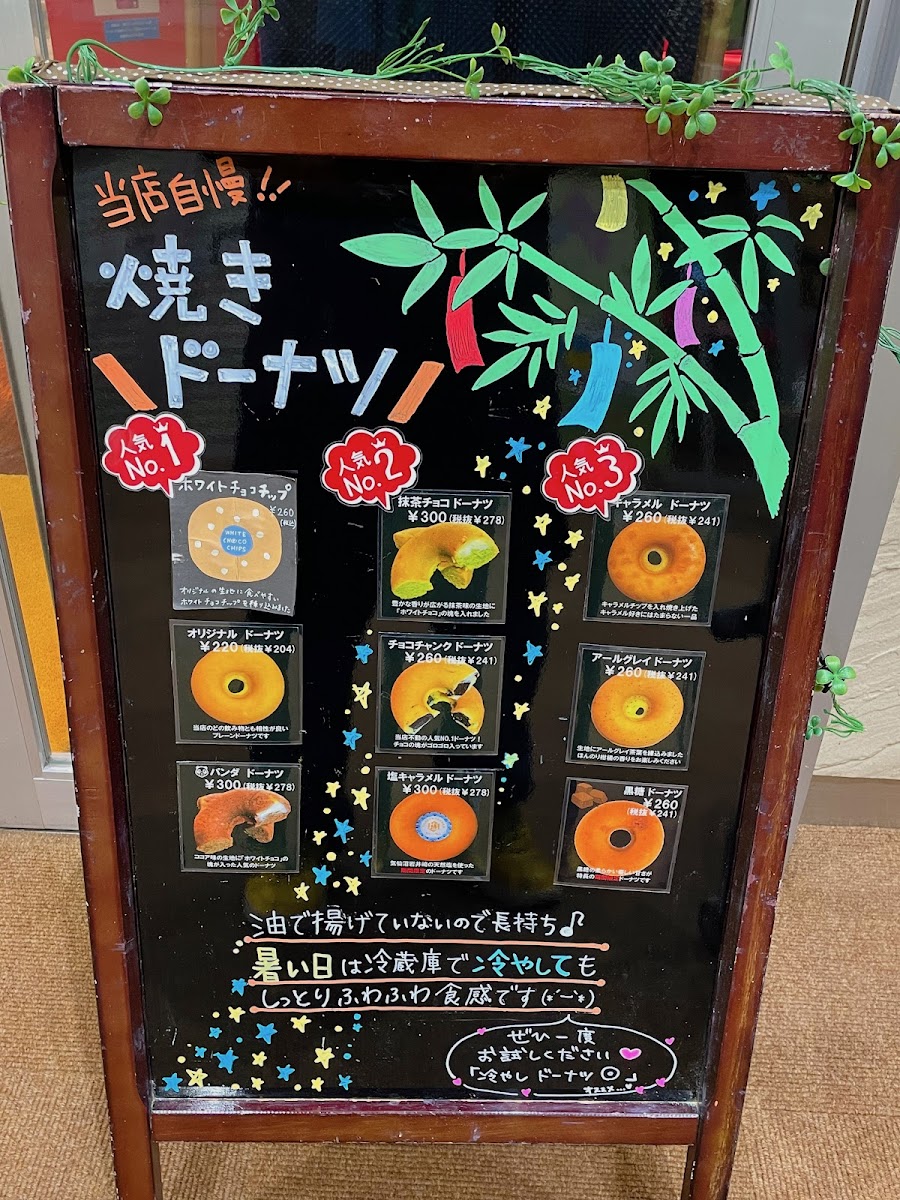 当店自慢!!
焼き
ドーナツ
人気
No.1
ホワイトチョコチップ
¥260
(税込)
WHITE
CHOCO
CHIPS
オリジナルの生地に食べやすい
ホワイトチョコチップを練り込みました
人気
No.2
抹茶チョコ ドーナツ
¥300(税抜¥278)
豊かな香りが広がる抹茶味の生地に
「ホワイトチョコ」の塊を入れました
人気
No.3
キャラメル ドーナツ
¥260(税抜¥241)
キャラメルチップを入れ焼き上げた
キャラメル好きにはたまらない一品
オリジナル ドーナツ
¥220(税抜¥204)
当店のどの飲み物とも相性が良い
プレーンドーナツです
チョコチャンク ドーナツ
¥260(税抜¥241)
当店不動の人気NO.1ドーナツ!
チョコの塊がゴロゴロ入っています
アールグレイ ドーナツ
¥260(税抜¥241)
生地にアールグレイ茶葉を練込みました
ほんのり柑橘の香りをお楽しみください
パンダ ドーナツ
¥300(税抜¥278)
ココア味の生地に「ホワイトチョコ」の
塊が入った人気のドーナツ
塩キャラメル ドーナツ
¥300(税抜¥278)
気仙沼岩井崎の天然塩を使った
期間限定のドーナツです
黒糖 ドーナツ
¥260
(税抜¥241)
特長の期間限定ドーナツです
油で揚げていないので長持ち♪
暑い日は冷蔵庫で冷やしても
しっとりふわふわ食感です(*´ー`*)
ぜひ一度
お試しください
「冷やし ドーナツ◎」